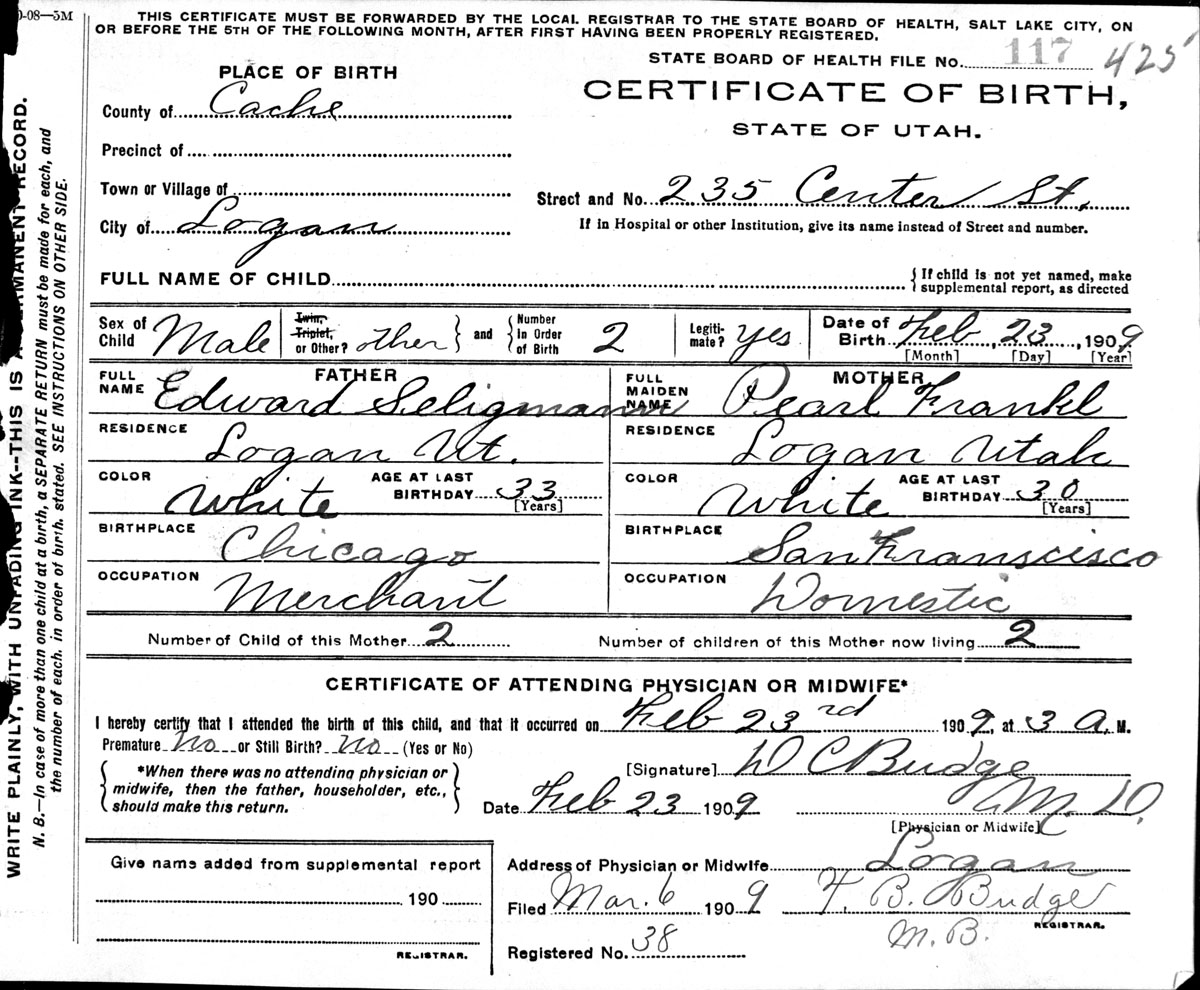 0-08—3M
THIS CERTIFICATE MUST BE FORWARDED BY THE LOCAL REGISTRAR TO THE STATE BOARD OF HEALTH, SALT LAKE CITY, ON
OR BEFORE THE 5TH OF THE FOLLOWING MONTH, AFTER FIRST HAVING BEEN PROPERLY REGISTERED.
STATE BOARD OF HEALTH FILE No. 117 425
PLACE OF BIRTH
CERTIFICATE OF BIRTH,
STATE OF UTAH.
County of Cache
Precinct of
Town or Village of
Street and No. 235 Center St.
City of Logan
If in Hospital or other Institution, give its name instead of Street and number.
FULL NAME OF CHILD
{ If child is not yet named, make
supplemental report, as directed
Sex of Child Male
Twin, Triplet, or Other? other } and { Number in Order of Birth 2
Legiti-mate? yes
Date of Birth Feb, 23, 1909
[Month] [Day] [Year]
FATHER
FULL NAME Edward Seligmann
MOTHER
FULL MAIDEN NAME Pearl Frankl
RESIDENCE Logan Ut.
RESIDENCE Logan Utah
COLOR White AGE AT LAST BIRTHDAY 33 [Years]
COLOR White AGE AT LAST BIRTHDAY 30 [Years]
BIRTHPLACE Chicago
BIRTHPLACE San Franscisco
OCCUPATION Merchant
OCCUPATION Domestic
Number of Child of this Mother 2 Number of children of this Mother now living 2
CERTIFICATE OF ATTENDING PHYSICIAN OR MIDWIFE*
I hereby certify that I attended the birth of this child, and that it occurred on Feb 23rd 1909, at 3 A. M.
Premature No or Still Birth? No (Yes or No)
{ *When there was no attending physician or
midwife, then the father, householder, etc.,
should make this return. }
[Signature] D C Budge
Date Feb 23 1909 M. D.
[Physician or Midwife]
Give name added from supplemental report
190
REGISTRAR.
Address of Physician or Midwife Logan
Filed Mar. 6 1909 T. B. Budge
M. B. REGISTRAR.
Registered No. 38
WRITE PLAINLY, WITH UNFADING INK--THIS IS A PERMANENT RECORD.
N. B.—In case of more than one child at a birth, a SEPARATE RETURN must be made for each, and
the number of each, in order of birth, stated. SEE INSTRUCTIONS ON OTHER SIDE.